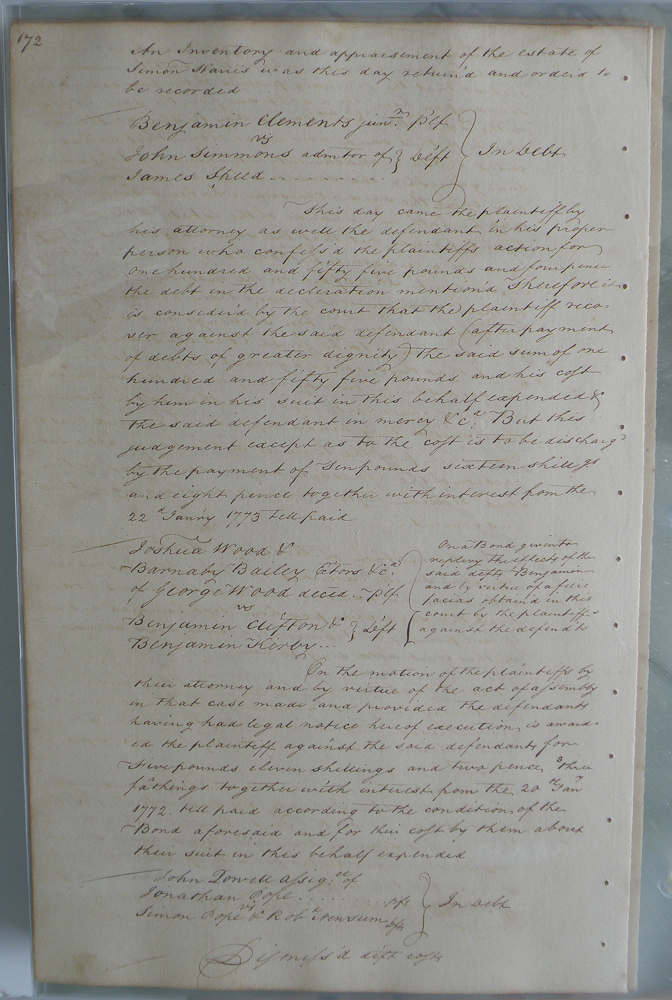 172
An Inventory and appraisement of the estate of
Simon Harris was this day return'd and order'd to
be recorded
Benjamin Clements junr. Plf
vs
John Simmons admtor of } Deft } In Debt
James Speed
This day came the plaintiff by
his attorney as well the defendant in his proper
person who confess'd the plaintiffs action for
one hundred and fifty five pounds and four pence
the debt in the declaration mention'd Therefore it
is consider'd by the court that the plaintiff reco-
ver against the said defendant (after payment
of debts of greater dignity) the said sum of one
hundred and fifty five pounds and his cost
by him in his suit in this behalf expended &
the said defendant in mercy &c. But this
judgement except as to the cost is to be discharg'd
by the payment of Ten pounds sixteen shillgs
and eight pence together with interest from the
22d Janry 1773 till paid
Joshua Wood &
Barnaby Bailey Extors &c.
of George Wood deced. Plf
vs
Benjamin Clifton & } Deft
Benjamin Kerby
On a Bond given to
replevy the effects of the
said defts Benjamin
and by virtue of a fieri
facias obtain'd in this
court by the plaintiffs
against the defendts
On the motion of the plaintiffs by
their attorney and by virtue of the act of assembly
in that case made and provided the defendants
having had legal notice hereof execution is award-
ed the plaintiff against the said defendants for
Five pounds eleven shillings and two pence three
fathings together with interest from the 20th Jany
1772 till paid according to the condition of the
Bond aforesaid and for their cost by them about
their suit in this behalf expended
John Powell assigee of
Jonathan Pope Plf } In Debt
vs
Simon Pope & Robt Newsum Dfts
Dismiss'd defts costs